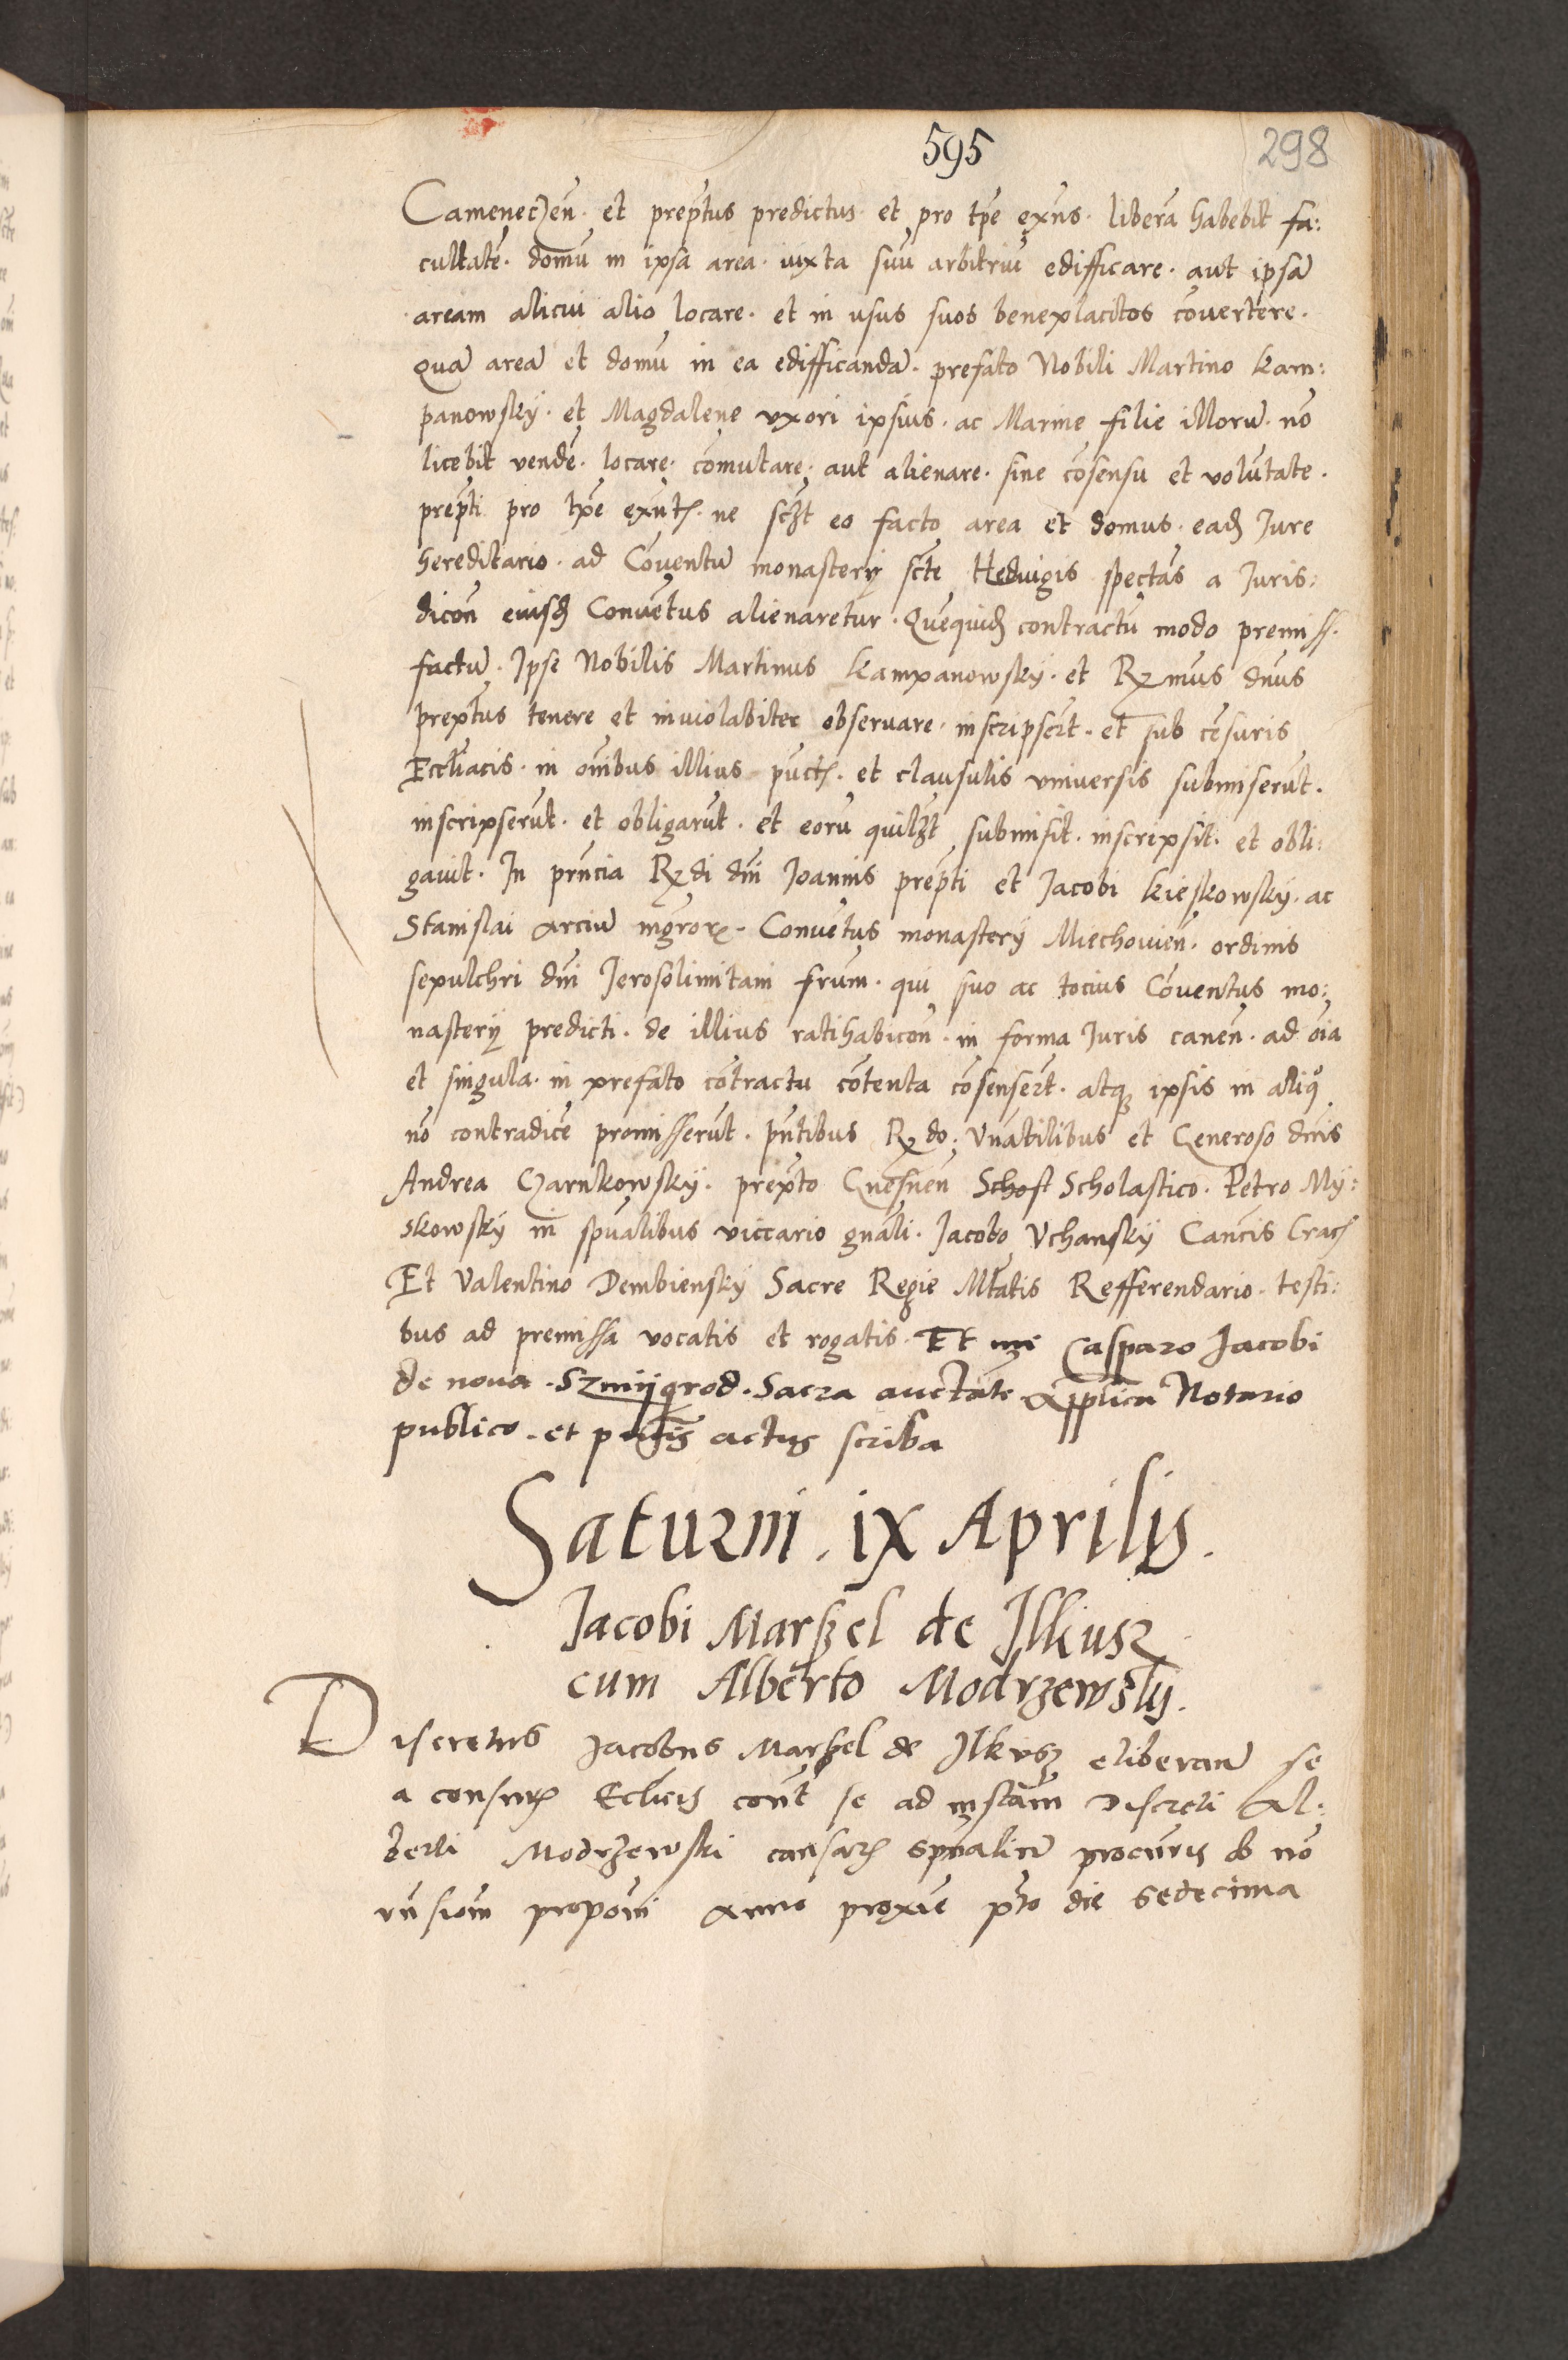 595 298
Camenecen. et prep̃tus predictus. et pro tp̃e exñs. liberã habebit fa:
cultatẽ. domũ in ipsa area. iuxta suũ arbitriũ edifficare. aut ipsã
aream alicui alio locare. et in usus suos beneplacitos cõuertere.
quã areã et domũ in ea edifficandã. prefato Nobili Martino Kam:
panowskÿ. et Magdalene vxori ipsius. ac Marine filie illorũ. nõ
licebit vendẽ. locare. cõmutare. aut alienare. sine cõsensu et volũtate.
prep̃ti pro tp̃e exñtꝭ. ne scꝫt eo facto area et domus. eadꝫ Jure
hereditario. ad Cõuentũ monasterÿ scte Hedwigis spectãs a Juris:
dicoñ eiusdꝫ Conuẽtus alienaretur. Quequidꝫ contractũ modo premiss.
factũ. Ipse Nobilis Martinus Kampanowskÿ. et Rꝫmus dñus
prep̃tus tenere et inuiolabiter obseruare. inscripsert. et sub cẽsuris
Eccl̃iacis. in õnibus illius puctꝭ. et clausulis vniuersis submiserũt.
inscripserũt. et obligarũt. et eorũ quilꝫt submisit. inscripsit. et obli:
gauit. In prñcia Rꝫdi dñi Joannis prep̃ti et Jacobi Kieskowskÿ. ac
Stanislai arciũ mg̃roꝝ. Conuẽtus monasterÿ Miechouieñ. ordinis
sepulchri dñi Jerosolimitani frũm. qui suo ac tocius Cõuentus mo:
nasterÿ predicti. de illius ratihabicoñ. in forma Juris caneñ. ad õia
et singula. in prefato cõtractu cõtenta cõsensert. atqꝫ ipsis in aliqͦ
nõ contradicẽ promisserũt. pñtibus Rꝫdo: Vnãtilibus et Generoso dñis
Andrea Czarnkowskÿ. prep̃to Gnesneñ Schost Scholastico. Petro Mÿ:
skowskÿ in spũalibus viccario gñali. Jacobo Vchanskÿ Cancis Cracꝭ
Et Valentino Dembienskÿ Sacre Regie Mt̃atis Refferendario. testi:
bus ad premissa vocatis et rogatis. Et me Casparo Jacobi
de noua. Szmijgrod. Sacra auctãte Applica Notario
publico. et pñtis actus scriba
Saturni. ix Aprilis.
Jacobi Marszel de Ilkusz
cum Alberto Modrzewsky.
Discretus Jacobus Marszel de Ilkusz eliberam̃ se
a censurꝭ Eccl̃icis coñt se ad instam̃ Discreti Al:
berti Modrzewski causarꝭ spũaliũ procũris ob nõ
propoñi anno proxie pͭto die sedecima